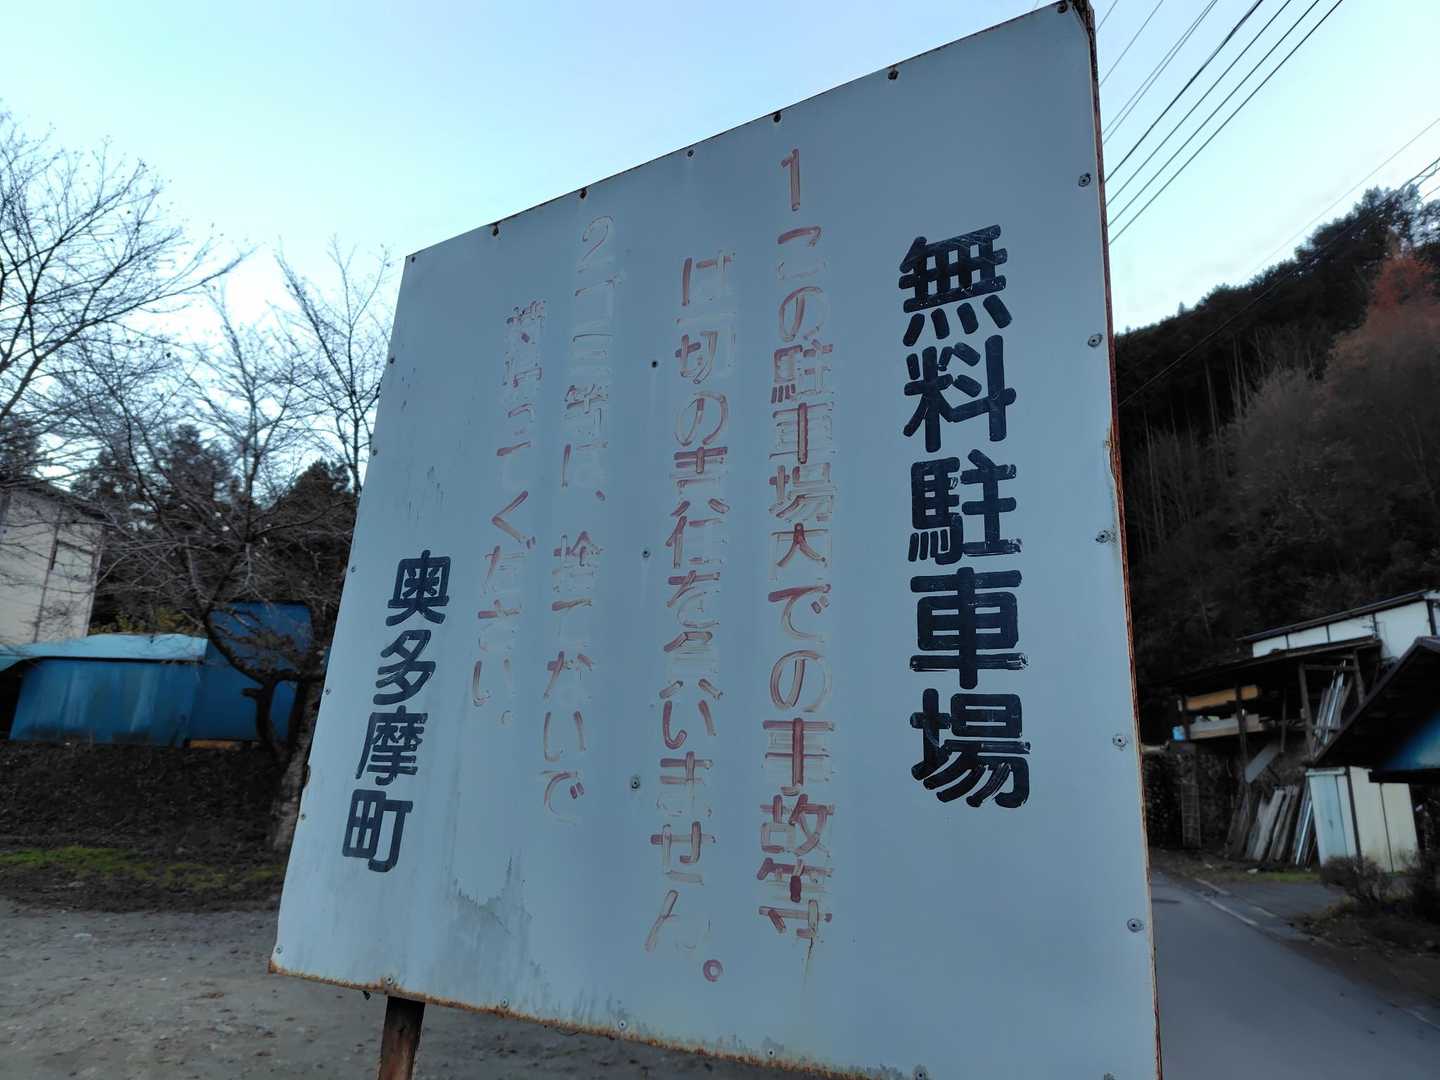 無料駐車場
1この駐車場内での事故等では
は一切の責任を負いません。
2ゴミ等は、捨てないで
持帰ってください。
奥多摩町